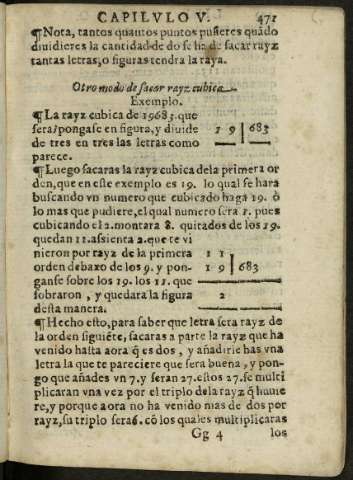 CAPILVLO V. 471
¶Nota, tantos quantos puntos pusieres quãdo
diuidieres la cantidad de do se ha de sacar rayz
tantas letras, o figuras tendra la raya.
Otro modo de sacar rayz cubica
Exemplo.
¶La rayz cubica de 19683. que
sera? pongase en figura, y diuide 1 9 | 683
de tres en tres las letras como
parece.
¶Luego sacaras la rayz cubica dela primera or
den, que en este exemplo es 19. lo qual se hara
buscando vn numero que cubicado haga 19. ò
lo mas que pudiere, el qual numero sera 2. pues
cubicando el 2. montara 8. quitados de los 19.
quedan 11. assienta 2. que te vi
nieron por rayz de la primera 1 1
orden debaxo de los 9. y pon- 1 9 | 683
ganse sobre los 19. los 11. que
sobraron, y quedara la figura 2
desta manera.
¶Hecho esto, para saber que letra sera rayz de
la orden siguiẽte, sacaras a parte la rayz que ha
venido hasta aora q̃ es dos, y añadirle has vna
letra la que te pareciere que sera buena, y pon-
go que añades vn 7. y seran 27. estos 27. se multi
plicaran vna vez por el triplo dela rayz q̃ huuie
re, y porque aora no ha venido mas de dos por
rayz, su triplo sera 6. cõ los quales multiplicaras
Gg 4 los